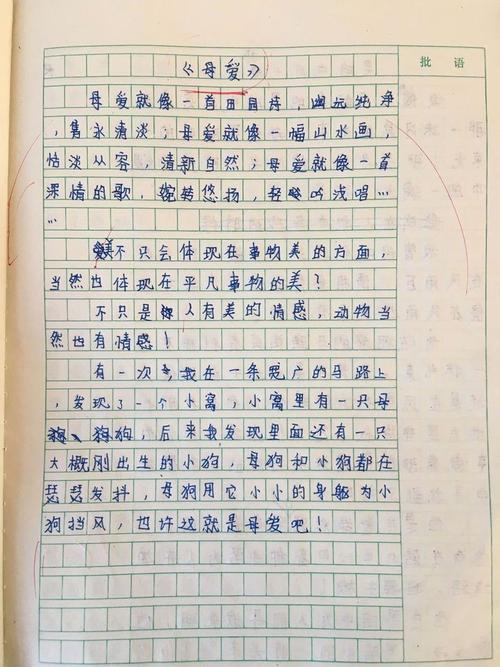 批 语
《母爱》
母爱就像一首田园诗，幽远纯净
，隽永清淡；母爱就像一幅山水画，
恬淡从容，清新自然；母爱就像一首
深情的歌，婉转悠扬，轻吟浅唱…
…
美不只会体现在事物美的方面，
当然也体现在平凡事物的美？
不只是人有美的情感，动物当
然也有情感！
有一次，我在一条宽广的马路上
，发现了一个小窝，小窝里有一只母
狗狗，后来我发现里面还有一只
大概刚出生的小狗，母狗和小狗都在
瑟瑟发抖，母狗用它小小的身躯为小
狗挡风，也许这就是母爱吧！